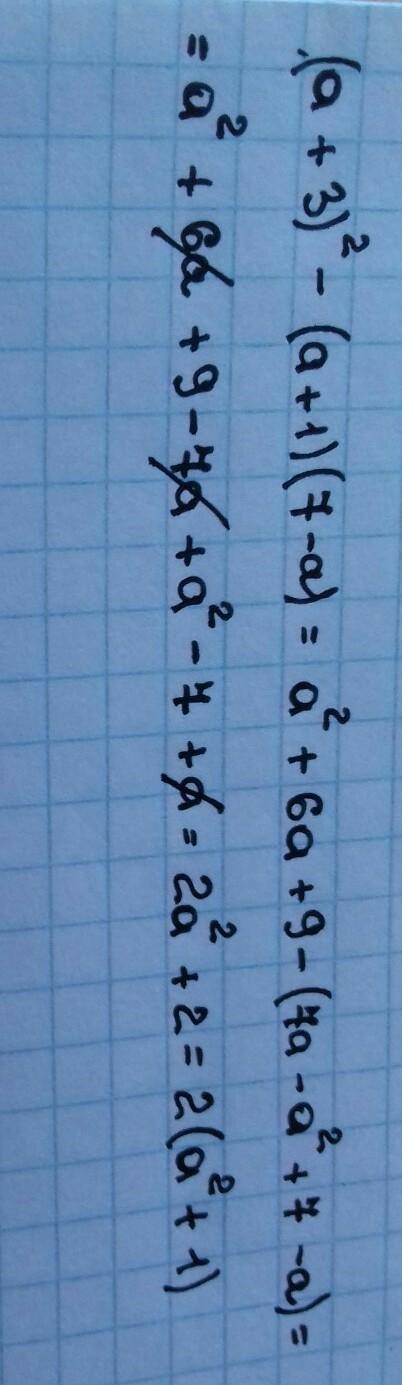 (a + 3)² - (a + 1)(7 - a) = a² + 6a + 9 - (7a - a² + 7 - a) =
= a² + 6a + 9 - 7a + a² - 7 + a = 2a² + 2 = 2(a² + 1)